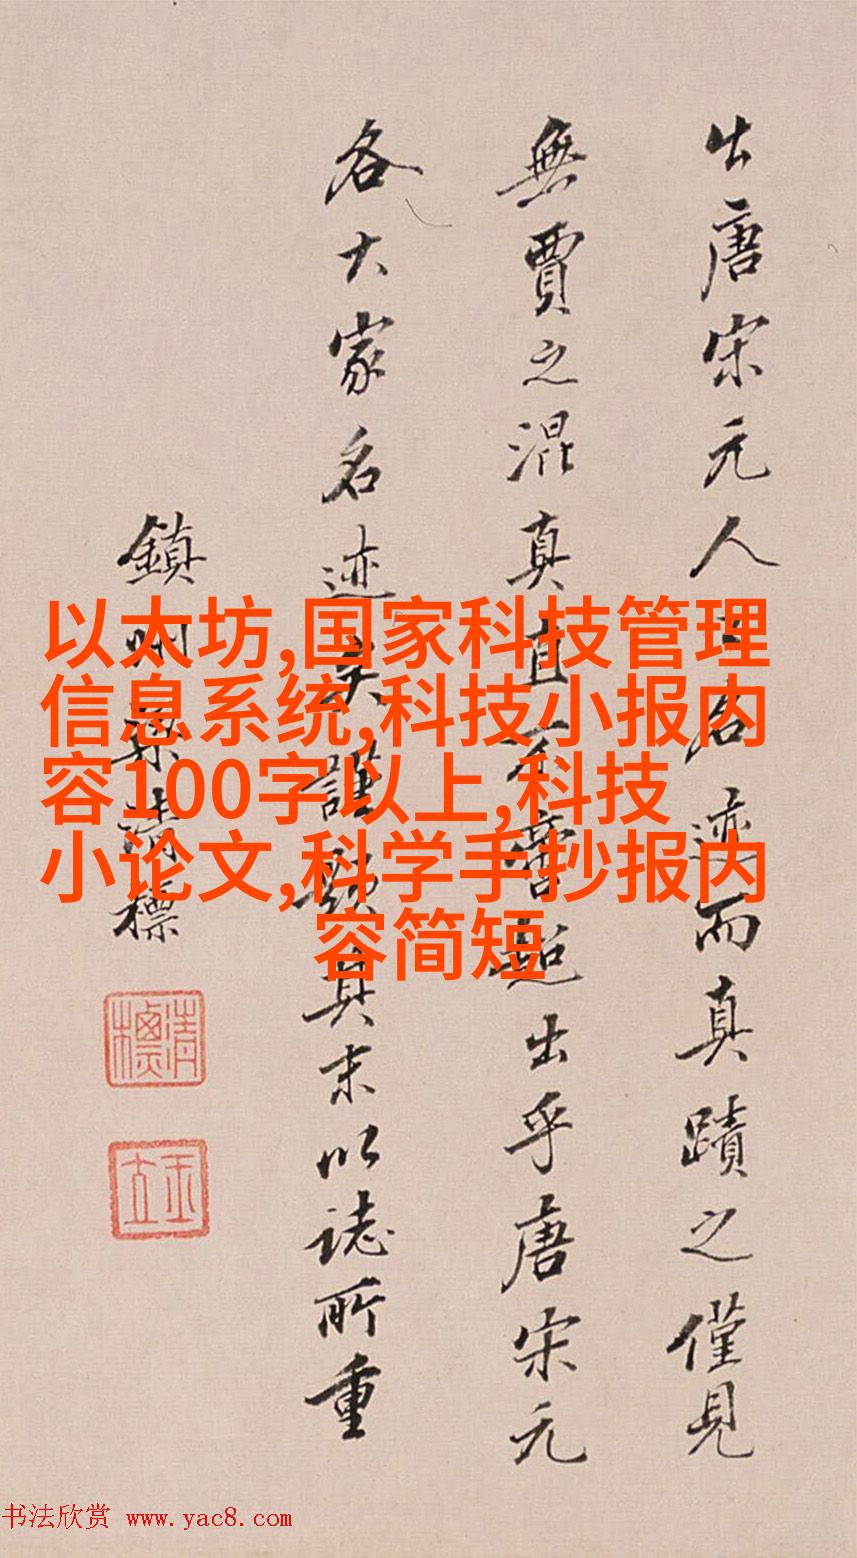 以太坊,国家科技管理
信息系统,科技小报内
容100字以上,科技
小论文,科学手抄报内
容简短
出唐宋元人名迹而真蹟之僅見
無賈之混真直超出乎唐宋元
各大家名迹矣謹題其末以誌所重
鎮州梁清標
清標
玉立
书法欣赏 www.yac8.com